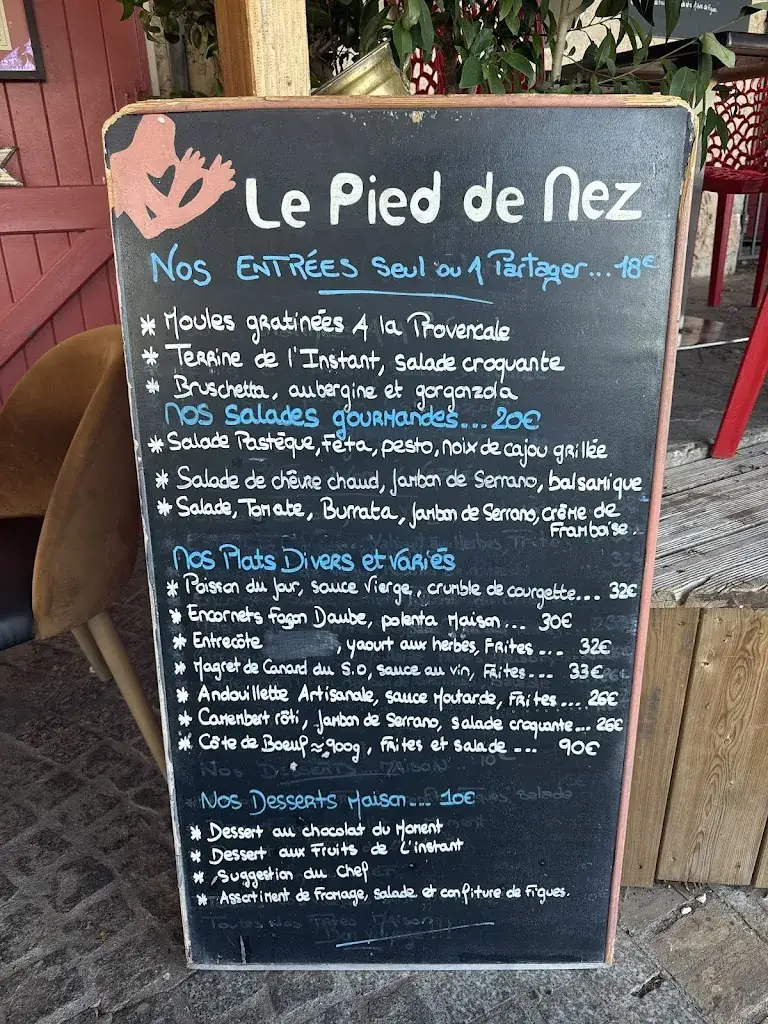 Le Pied de Nez
Nos ENTRÉES Seul ou A Partager...18€
* Moules gratinées A la Provencale
* Terrine de l'Instant, salade croquante
* Bruschetta, aubergine et gorgonzola
NOS Salades gourmandes...20€
* Salade Pastèque, Feta, pesto, noix de cajou grillée
* Salade de chèvre chaud, Jambon de Serrano, balsamique
* Salade, Tomate, Burrata, Jambon de Serrano, crème de
Framboise.
Nos Plats Divers et variés
* Poisson du Jour, sauce Vierge,, crumble de courgette... 32€
* Encornets Façon Daube, polenta Maison... 30€
* Entrecôte , yaourt aux herbes, Frites... 32€
* Magret de Canard du S.O, sauce au vin, Frites... 33€
* Andouillette Artisanale, sauce Moutarde, Frites.... 26€
* Camembert rôti, Jambon de Serrano, salade croquante... 26€
* Côte de Boeuf ≈ 900g, Frites et salade... 90€
Nos Desserts Maison... 10€
* Dessert au chocolat du Moment
* Dessert aux Fruits de L'instant
* Suggestion du Chef
* Assortiment de Fromage, salade et confiture de Figues.